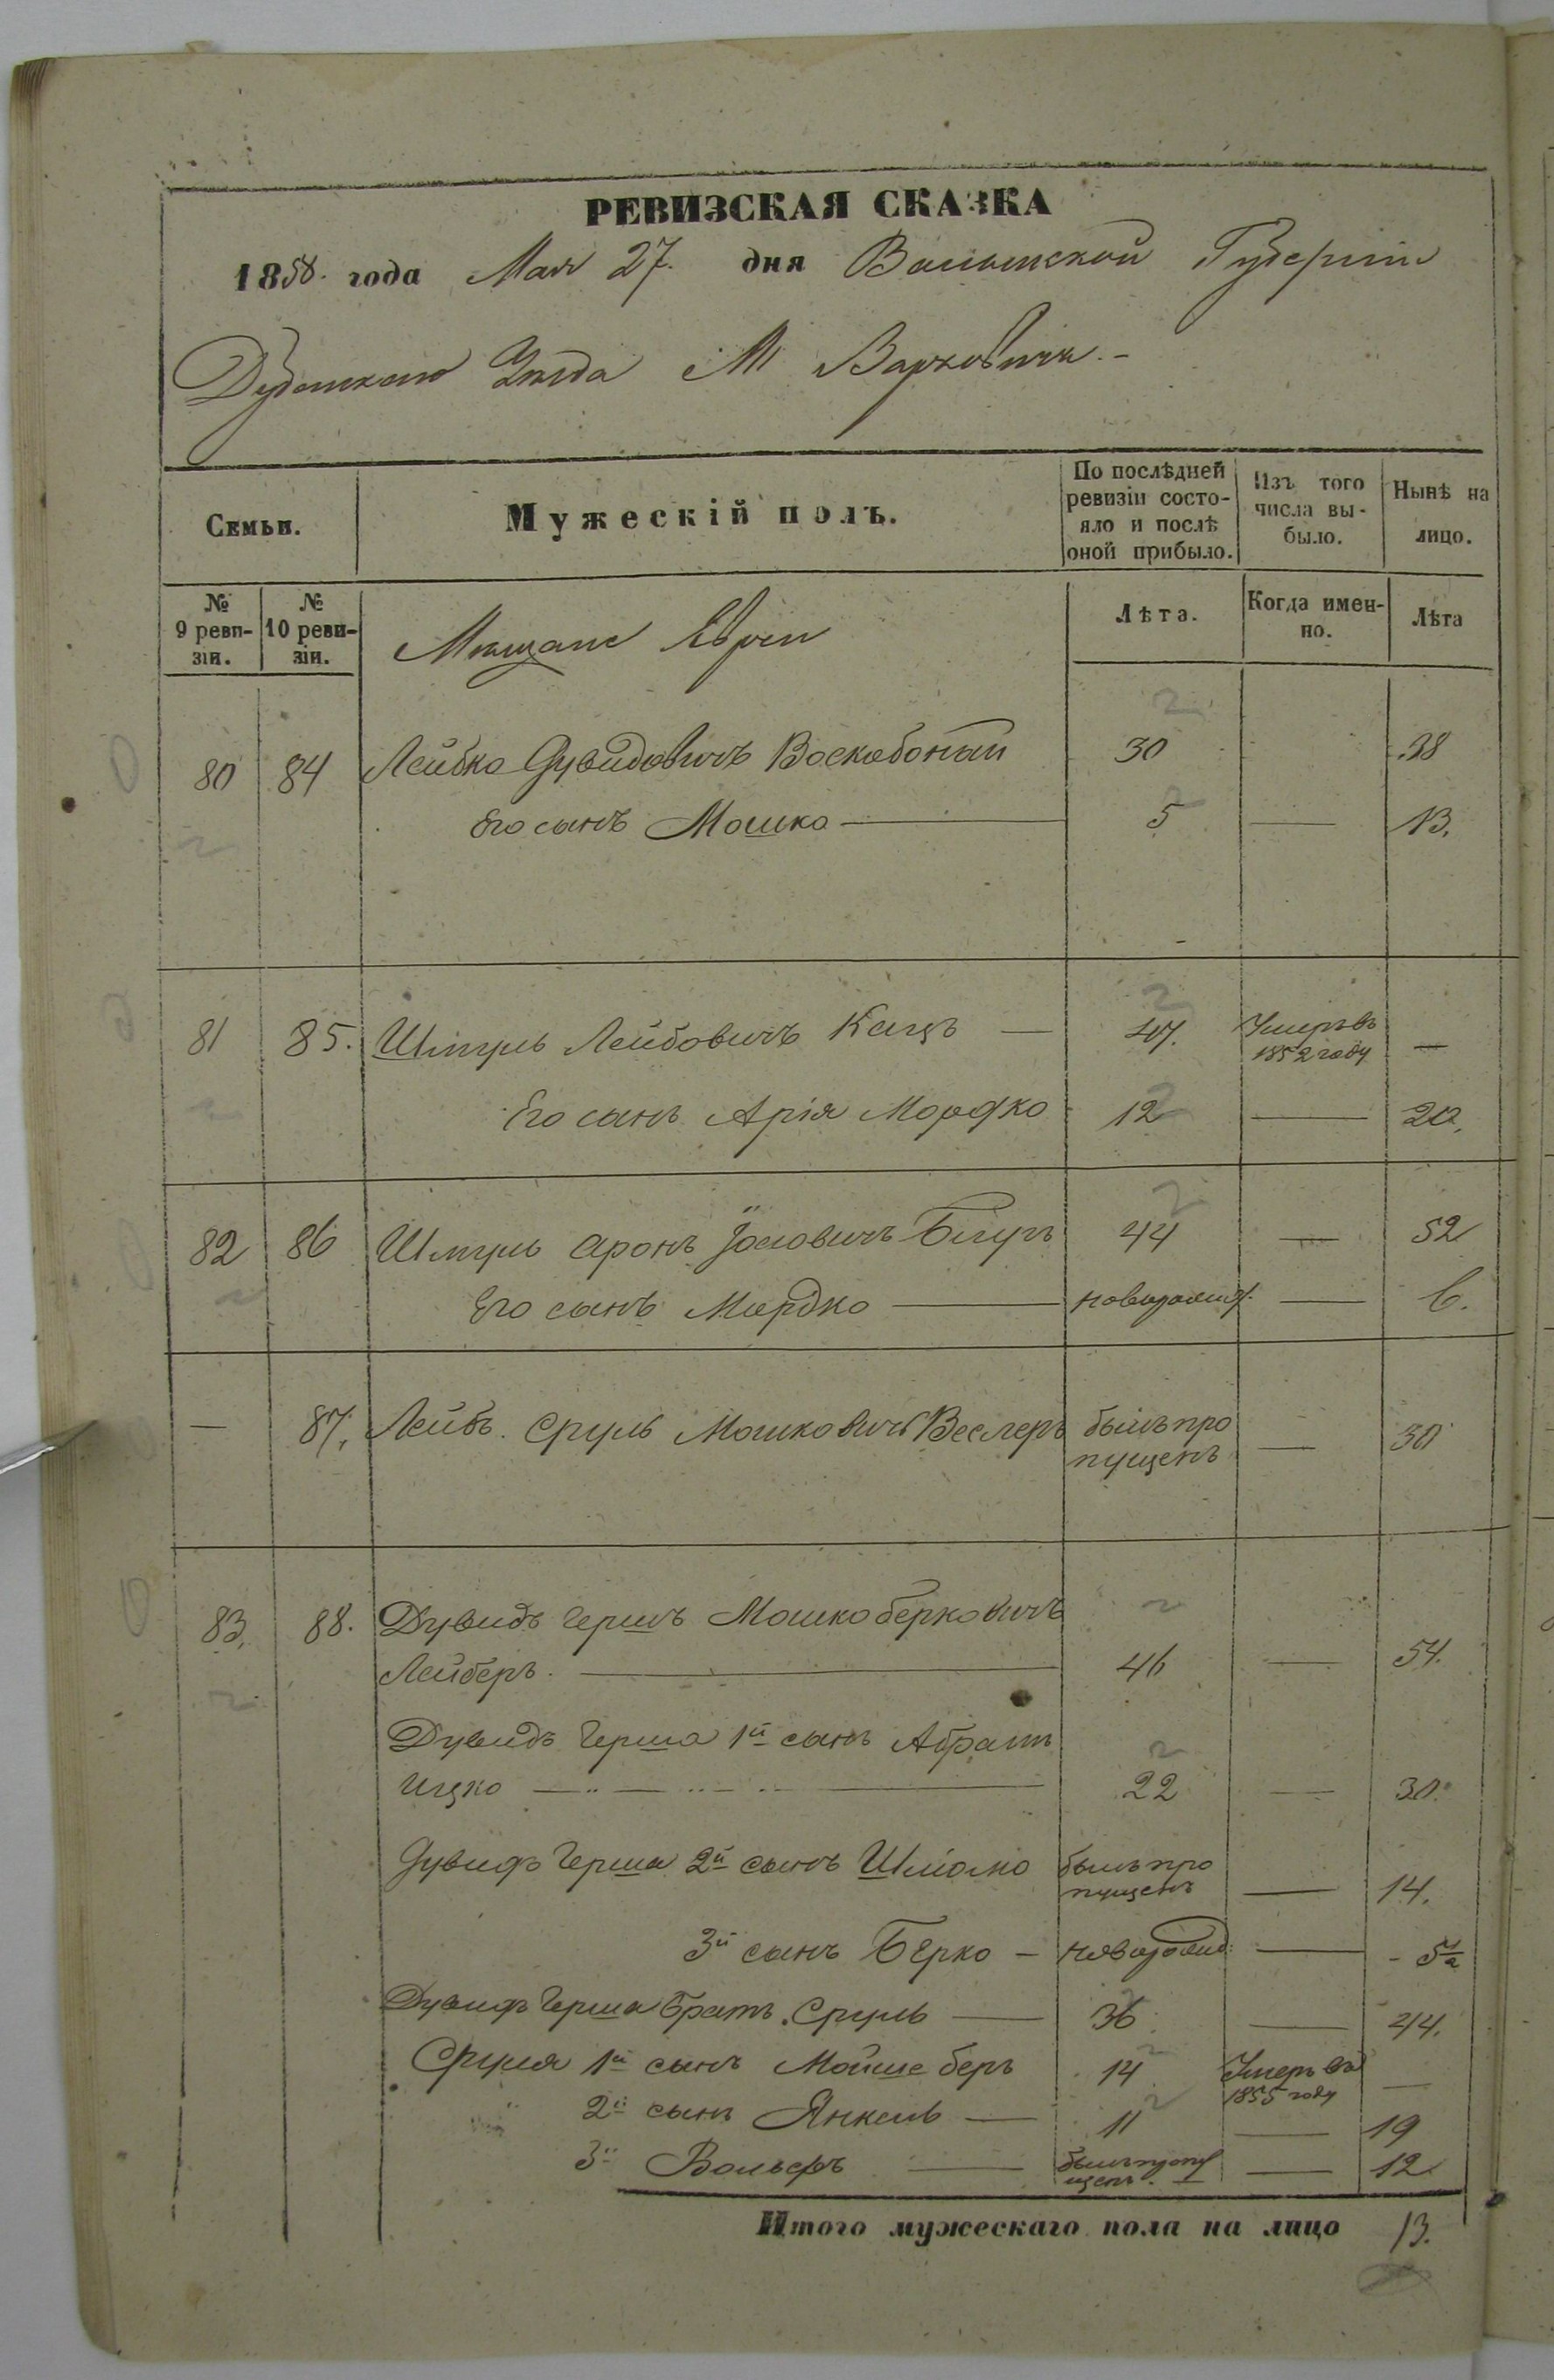 РЕВИЗСКАЯ СКАЗКА
1858. года Мая 27. дня Волынской Губерніи
Дубенскаго Уѣзда М Варковичи.-
Семьи.
Мужескій полъ.
По послѣдней ревизіи состо-яло и послѣ оной прибыло.
Изъ того числа вы-было.
Нынѣ на лицо.
№ 9 реви-зіи.
№ 10 реви-зіи.
Мѣщане Евреи
Лѣта.
Когда имен-но.
Лѣта
80 84 Лейбко Дувидовичъ Воскобойный 30 38
Его сынъ Мошко — 5 — 13.
81 85. Шмуль Лейбовичъ Кацъ — 47. Умеръ въ 1852 году —
Его сынъ Арія Мордко 12 — 20.
82 86 Шмуль Аронъ Іосиовичъ 44 — 52
Его сынъ Мордко — новорожд. — 6.
— 87. Лейбъ Сруль Мошковичъ Веслеръ былъ про пущенъ — 30
83. 88. Дувидъ Гершъ Мошкоберковичъ
Лейберъ. — 46 — 54.
Дувидъ Герша 1й сынъ Абрамъ
Ицко — 22 — 30.
Дувидъ Герша 2й сынъ Шліомо былъ про пущенъ — 14.
3й сынъ Берко — новорожд: — 5½
Дувидъ Герша братъ Сруль — 36 — 44.
Сруля 1й сынъ Мойше беръ 14 Умеръ въ 1855 году —
2й сынъ Янкель — 11 — 19
3й Вольфъ — былъ пропу щенъ. — 12
Итого мужескаго пола на лицо 13.